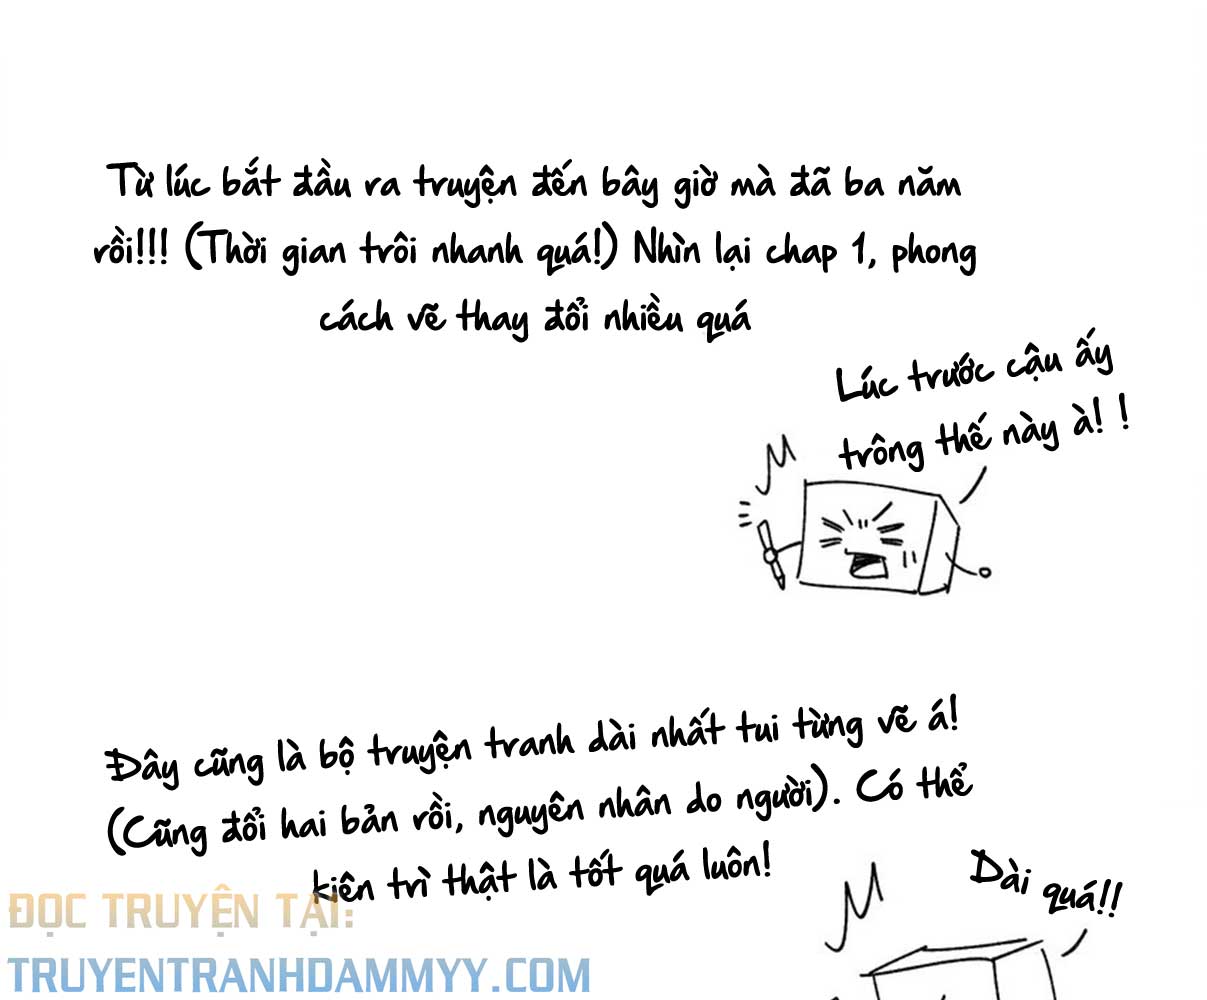 Từ lúc bắt đầu ra truyện đến bây giờ mà đã ba năm
rồi!!! (Thời gian trôi nhanh quá!) Nhìn lại chap 1, phong
cách vẽ thay đổi nhiều quá
Lúc trước cậu ấy
trông thế này à! !
Đây cũng là bộ truyện tranh dài nhất tui từng vẽ á!
(Cũng đổi hai bản rồi, nguyên nhân do người). Có thể
kiên trì thật là tốt quá luôn!
Dài quá!!
ĐỌC TRUYỆN TẠI:
TRUYENTRANHDAMMYY.COM